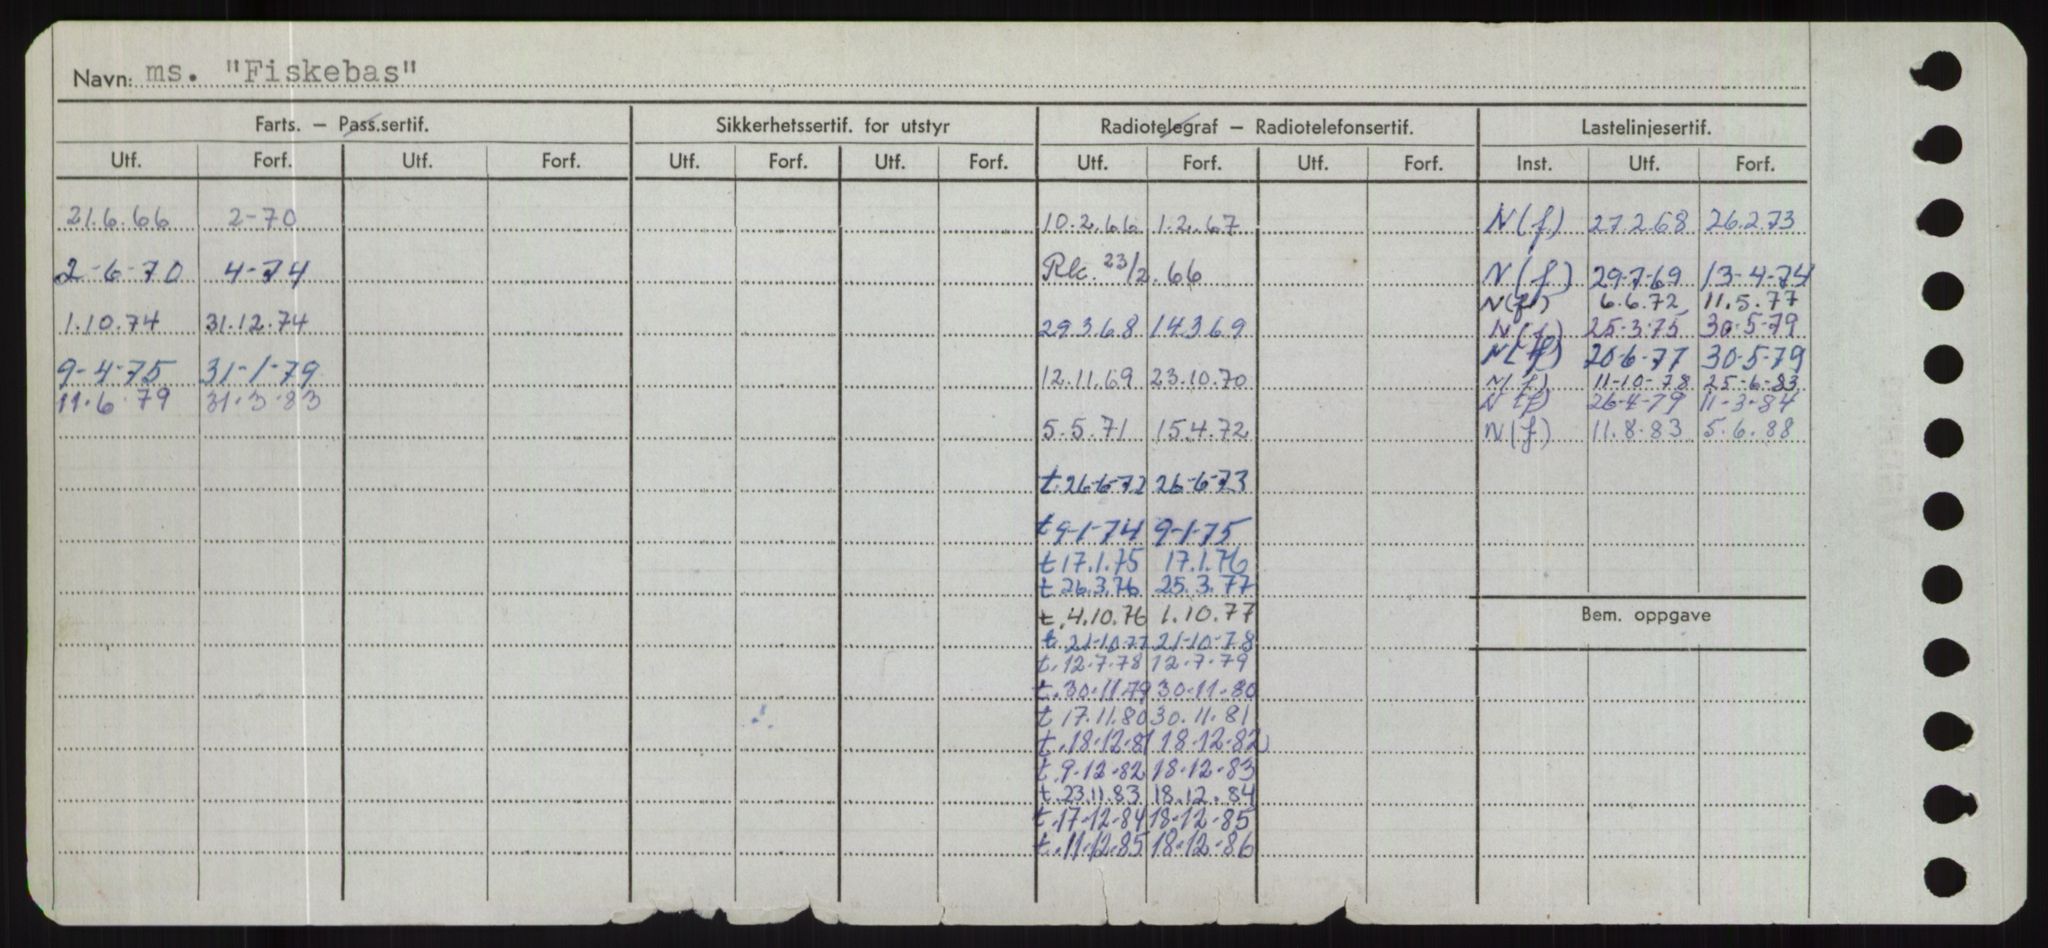 Navn: ms. "Fiskebas"
Farts. – Pass.sertif. Sikkerhetssertif. for utstyr Radiotelegraf – Radiotelefonsertif. Lastelinjesertif.
Utf. Forf. Utf. Forf. Utf. Forf. Utf. Forf. Utf. Forf. Utf. Forf. Inst. Utf. Forf.
21.6.66 2-70 10.2.66 1.2.67 N(f.) 27.2.68 26.2.73
2-6-70 4-74 Rk. 23/2.66 N(f) 29-7-69 13-4-74
N(f.) 6.6.72 11.5.77
1.10.74 31.12.74 29.3.68 14.3.69 N(f) 25-3-75 30-5-79
9-4-75 31-1-79 N(f) 20-6-77 30-5-79
12.11.69 23.10.70 N(f) 11-10-78 25-6-83
11.6.79 31.3.83 N(f) 26-4-79 11-3-84
5.5.71 15.4.72 N(f) 11.8.83 5.6.88
t.26-6-72 26-6-73
t 9-1-74 9-1-75
t 17.1.75 17.1.76
t.26.3.76 25.3.77
t.4.10.76 1.10.77
Bem. oppgave
t.21-10-77 21-10-78
t.12.7.78 12.7.79
t.30.11.79 30-11-80
t 17.11.80 30.11.81
t.18-12-81 18-12-82
t.9-12-82 18-12-83
t.23.11.83 18.12.84
t.17-12-84 18-12-85
t.11-12-85 18-12-86